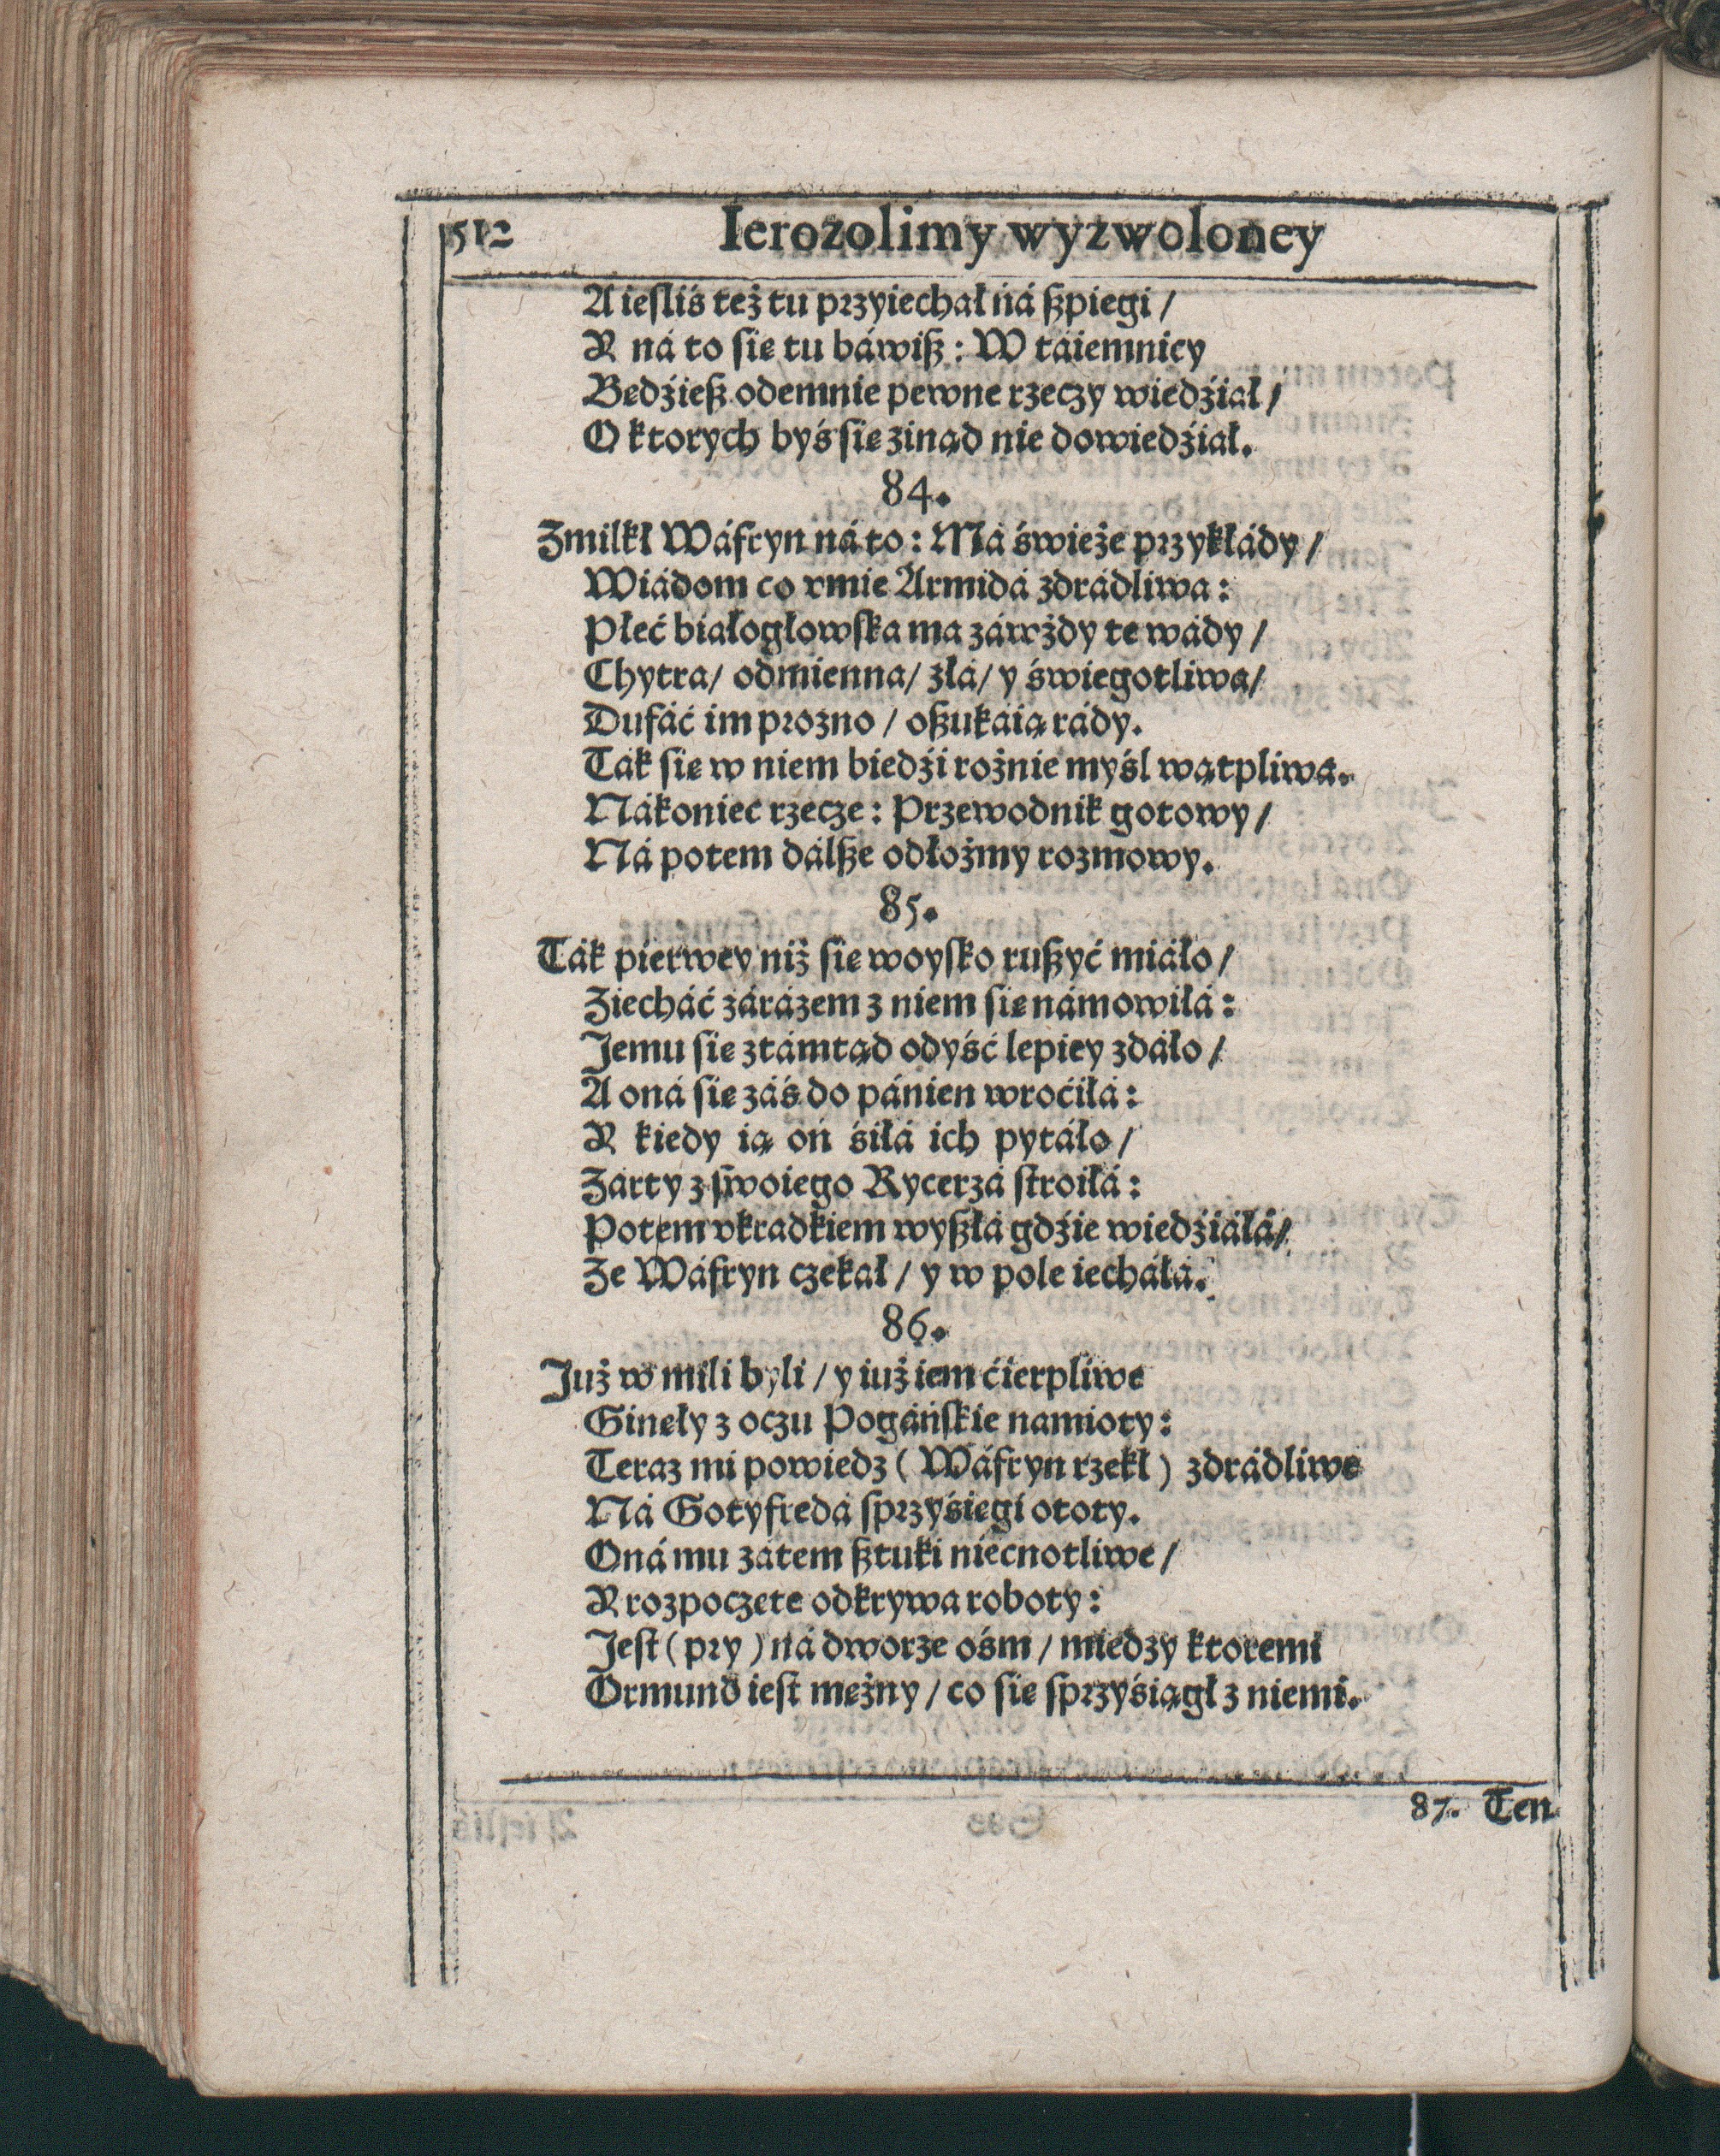 512 Ierozolimy wyzwoloney
A ieſliś też tu przyiechał ná ſzpiegi /
Y ná to ſię tu báwiſz : W táiemnicy
Będźieſz odemnie pewne rzeczy wiedźiał /
O ktorych byś ſię zinąd nie dowiedźiał.
84.
Zmilkł Wáfryn ná to : Má świeże przykłády /
Wiádom co vmie Armidá zdrádliwa :
Płeć białogłowſka ma záwżdy te wády /
Chytra / odmienna / zła / y świegotliwa /
Dufáć im prozno / oſzukáią rády.
Ták ſię w niem biedźi rożnie myśl wątpliwa.
Nákoniec rzecze : Przewodnik gotowy /
Ná potem dálſze odłożmy rozmowy.
85.
Ták pierwey niż ſię woyſko ruſzyć miáło /
Ziecháć zárázem z niem ſię námowiłá :
Jemu ſię ztámtąd odyść lepiey zdáło /
A oná ſię záś do pánien wroćiłá :
Y kiedy ią oń śiłá ich pytáło /
Zarty z ſwoiego Rycerzá ſtroiłá :
Potem vkradkiem wyſzłá gdźie wiedźiáłá /
Ze Wáfryn czekał / y w pole iecháłá.
86.
Już w mili byli / y iuż iem ćierpliwe
Ginęły z oczu Pogáńſkie namioty :
Teraz mi powiedz ( Wáfryn rzekł ) zdrádliwe
Ná Gotyfredá ſprzyśięgi o toty.
Oná mu zátem ſztuki niecnotliwe /
Y rozpoczęte odkrywa roboty :
Jeſt ( pry ) ná dworze ośm / miedzy ktoremi
Ormund ieſt mężny / co ſię ſprzyśiągł z niemi.
87. Ten